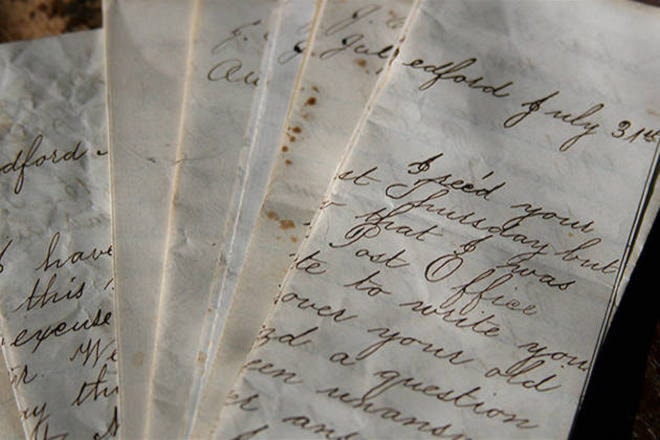 dford
I have
this
excuse
We
Au
J.
Jul
edford July 31st
I rec'd your
st Thursday but
that I was
Post Office
te to write you
over your old
a question
een unansw